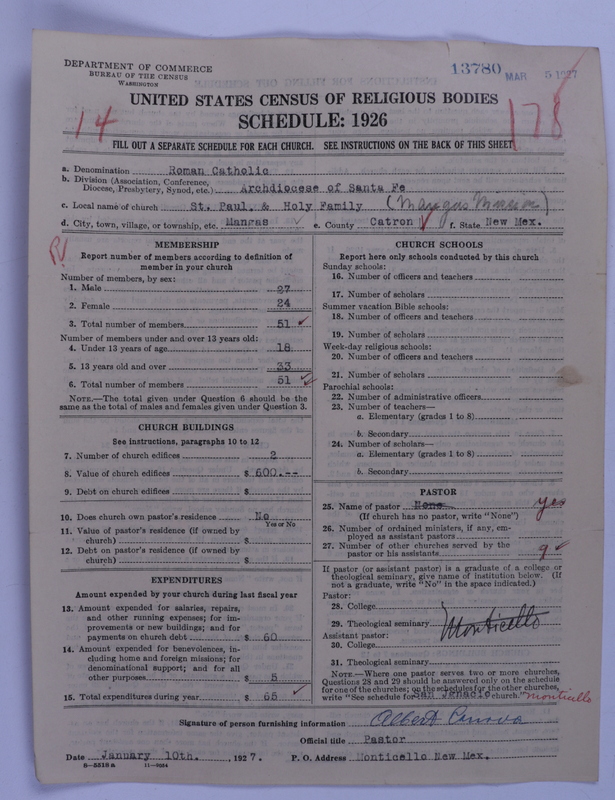 DEPARTMENT OF COMMERCE
BUREAU OF THE CENSUS
WASHINGTON
13780 MAR 5 1927
UNITED STATES CENSUS OF RELIGIOUS BODIES
SCHEDULE: 1926
14
178
FILL OUT A SEPARATE SCHEDULE FOR EACH CHURCH. SEE INSTRUCTIONS ON THE BACK OF THIS SHEET
a. Denomination Roman Catholic
b. Division (Association, Conference,
Diocese, Presbytery, Synod, etc.) Archdiocese of Santa Fe
c. Local name of church St. Paul. & Holy Family (Mangas Mission)
d. City, town, village, or township, etc. Mangas e. County Catron f. State New Mex.
MEMBERSHIP
Report number of members according to definition of
member in your church
Number of members, by sex:
1. Male 27
2. Female 24
3. Total number of members 51
Number of members under and over 13 years old:
4. Under 13 years of age 18
5. 13 years old and over 33
6. Total number of members 51
NOTE.—The total given under Question 6 should be the
same as the total of males and females given under Question 3.
CHURCH BUILDINGS
See instructions, paragraphs 10 to 12
7. Number of church edifices 2
8. Value of church edifices $ 600.--
9. Debt on church edifices $
10. Does church own pastor's residence No
Yes or No
11. Value of pastor's residence (if owned by
church) $
12. Debt on pastor's residence (if owned by
church) $
EXPENDITURES
Amount expended by your church during last fiscal year
13. Amount expended for salaries, repairs,
and other running expenses; for im-
provements or new buildings; and for
payments on church debt $ 60
14. Amount expended for benevolences, in-
cluding home and foreign missions; for
denominational support; and for all
other purposes $ 5
15. Total expenditures during year $ 65
CHURCH SCHOOLS
Report here only schools conducted by this church
Sunday schools:
16. Number of officers and teachers
17. Number of scholars
Summer vacation Bible schools:
18. Number of officers and teachers
19. Number of scholars
Week-day religious schools:
20. Number of officers and teachers
21. Number of scholars
Parochial schools:
22. Number of administrative officers
23. Number of teachers—
a. Elementary (grades 1 to 8)
b. Secondary
24. Number of scholars—
a. Elementary (grades 1 to 8)
b. Secondary
PASTOR
25. Name of pastor None yes
(If church has no pastor, write "None")
26. Number of ordained ministers, if any, em-
ployed as assistant pastors
27. Number of other churches served by the
pastor or his assistants 9
If pastor (or assistant pastor) is a graduate of a college or
theological seminary, give name of institution below. (If
not a graduate, write "No" in the space indicated.)
Pastor:
28. College
29. Theological seminary Monticello
Assistant pastor:
30. College
31. Theological seminary
NOTE.—Where one pastor serves two or more churches,
Questions 28 and 29 should be answered only on the schedule
for one of the churches; on the schedules for the other churches,
write "See schedule for San Ignacio church." Monticello
Signature of person furnishing information Albert
Official title Pastor
Date January 10th. , 1927. P. O. Address Monticello New Mex.
8—5518a 11—9034